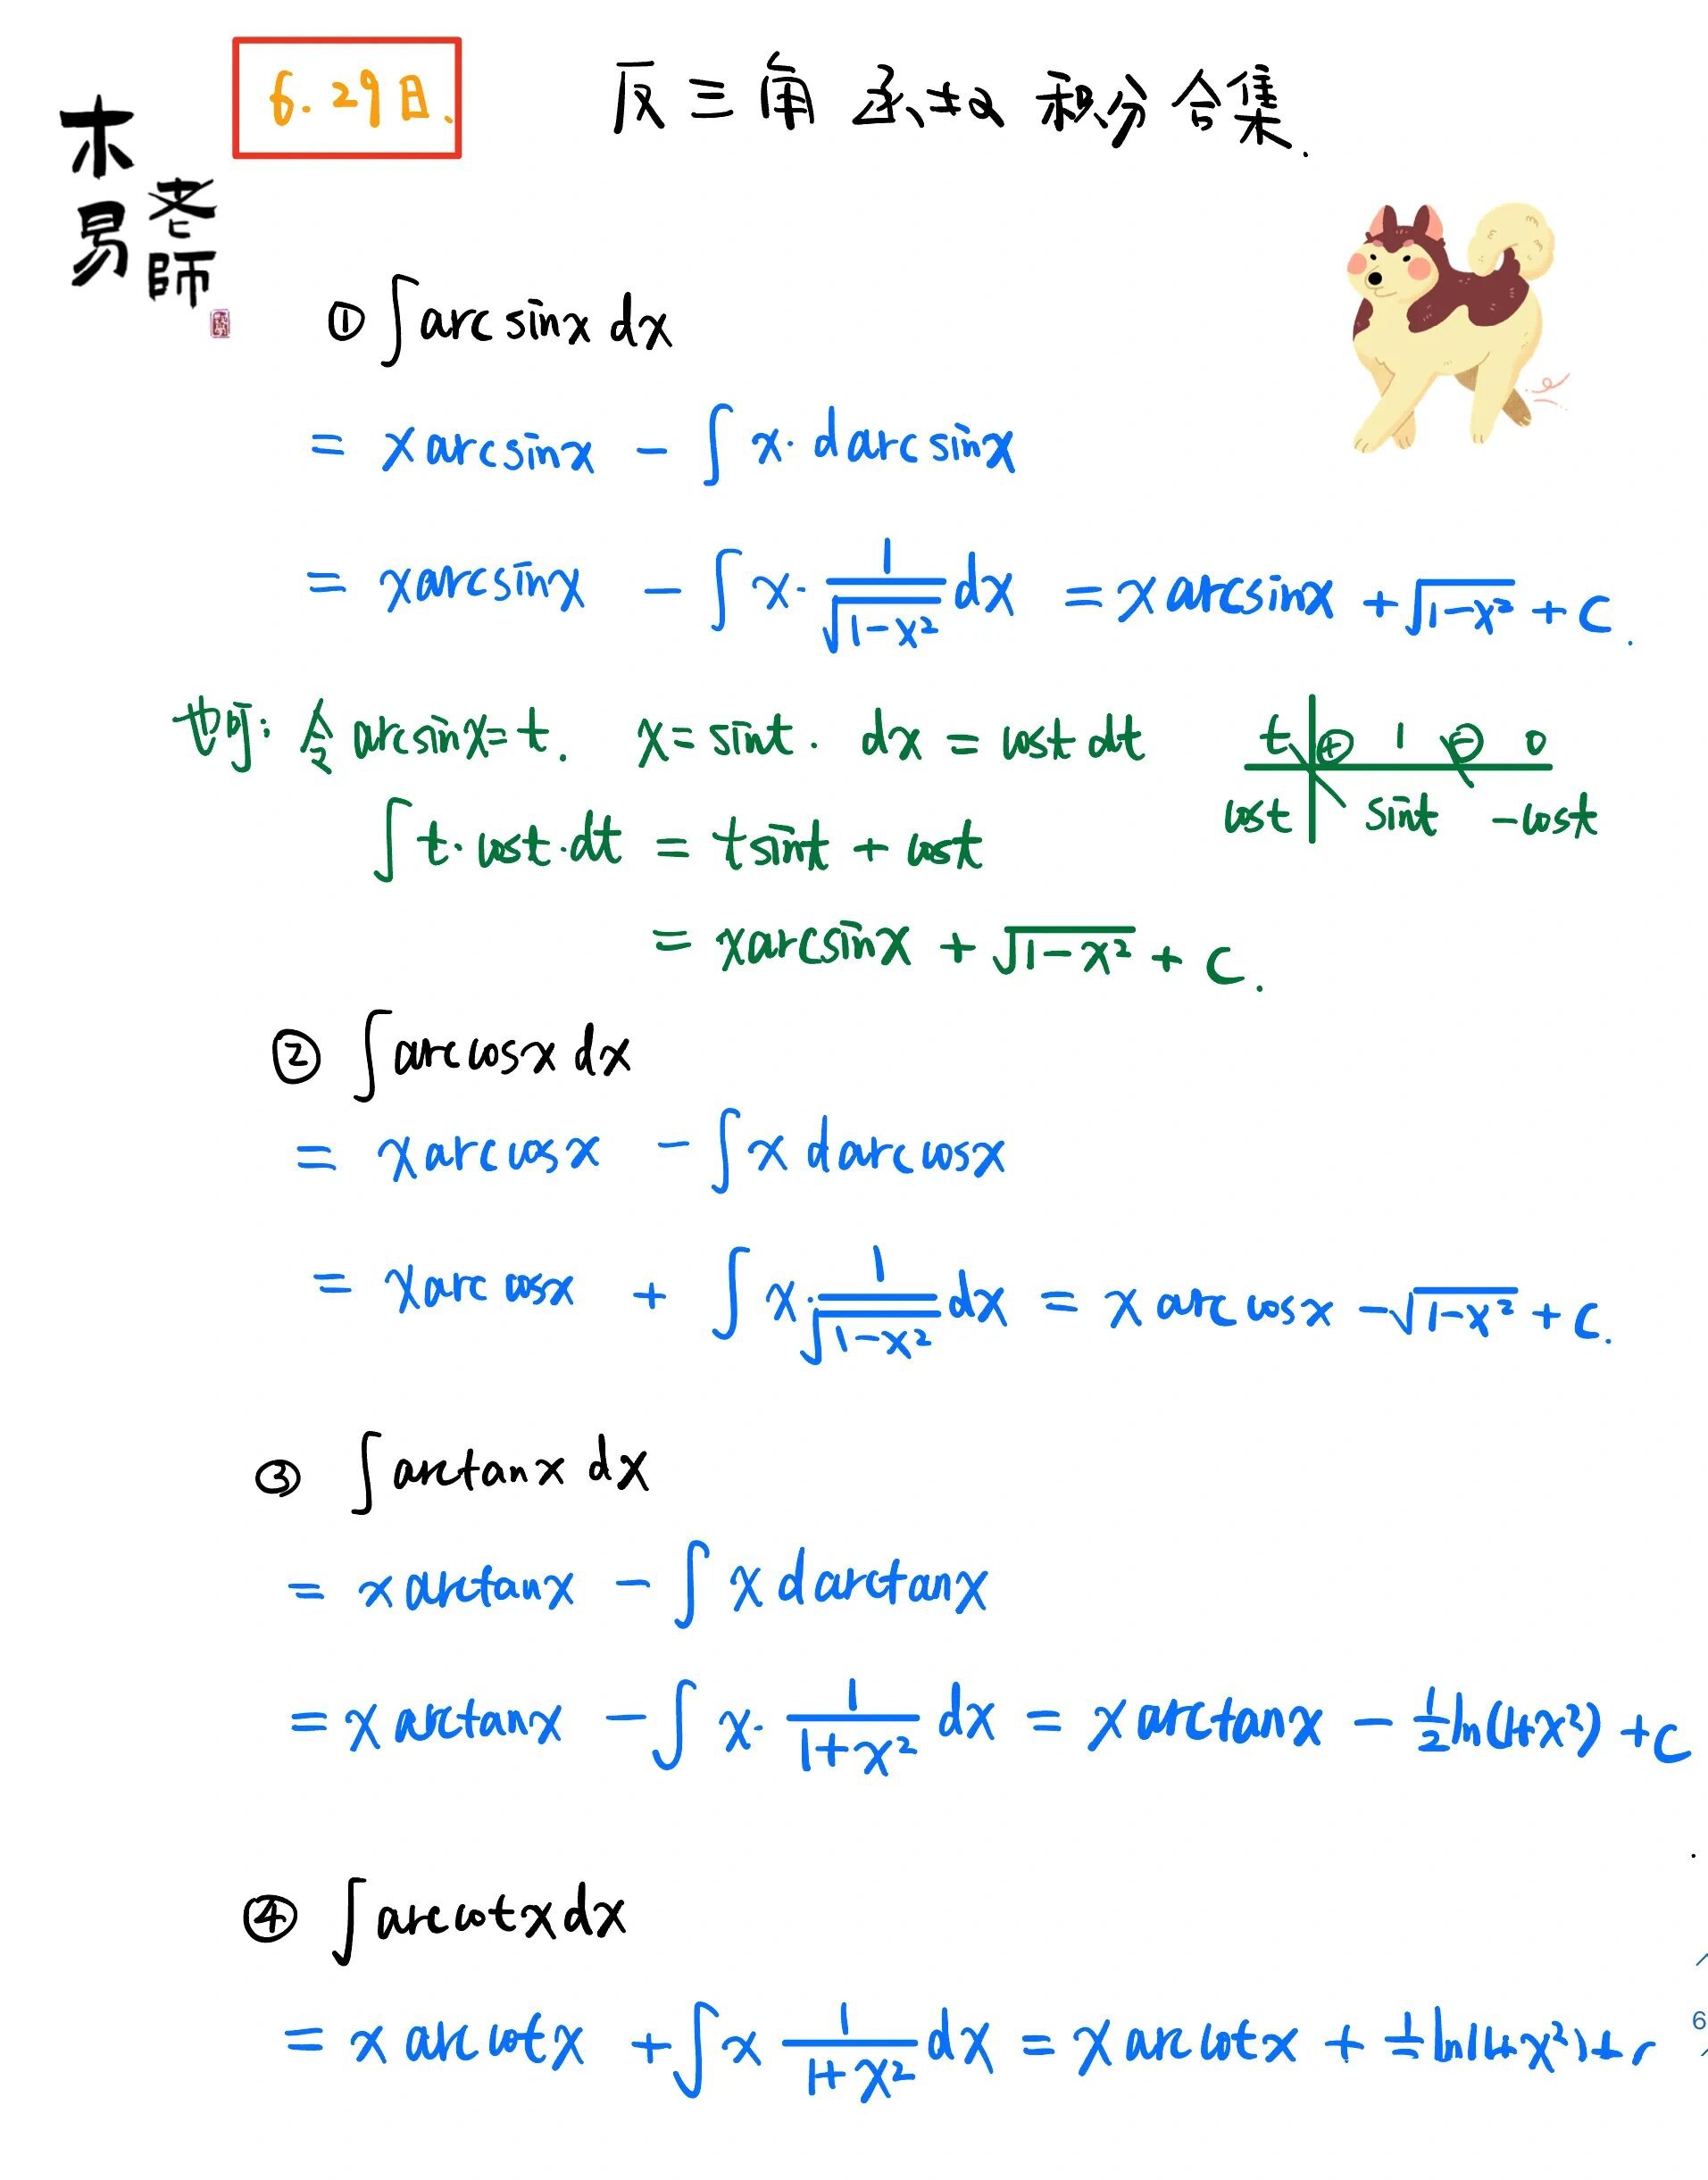 6.29日.
反三角函数积分合集.
木易老師
① ∫arcsinx dx
= xarcsinx - ∫x·darcsinx
= xarcsinx - ∫x·1/√(1-x²) dx = xarcsinx + √(1-x²) + C.
也可: 令arcsinx=t. x=sint. dx=costdt
t ⊕ 1 ⊖ 0
cost sint -cost
∫t·cost·dt = tsint + cost
= xarcsinx + √(1-x²) + C.
② ∫arccosx dx
= xarccosx - ∫x darccosx
= xarccosx + ∫x·1/√(1-x²) dx = xarccosx - √(1-x²) + C.
③ ∫arctanx dx
= xarctanx - ∫x darctanx
= xarctanx - ∫x·1/(1+x²) dx = xarctanx - ½ln(1+x²) + C
④ ∫arccotxdx
= xarccotx + ∫x 1/(1+x²) dx = xarccotx + ½ln(1+x²)+C
6